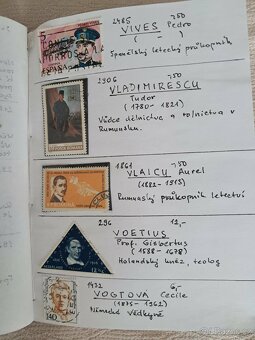 2485 750
VIVES Pedro
( - )
Španělský letecký průkopník
ESPAÑA
2306
VLADIMIRESCU
Tudor
(1780 - 1821)
Vůdce dělnictva a rolnictva v
Rumunsku.
1861 750
VLAICU Aurel
(1882 - 1913)
Rumunský průkopník letectví
296 12,-
VOETIUS
Prof. Gisbertus
(1588 - 1678)
Holandský kněz, teolog
1472 6,-
VOGTOVA Cecile
(1875 - 1962)
Německá vědkyně
140